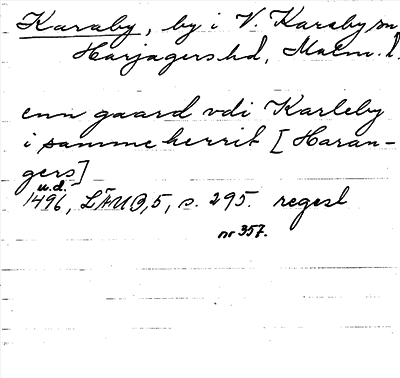 Karaby, by i V. Karaby sn
Harjagers hd, Malm. l.
enn gaard vdi Karleby
i samme herrit [Haran-
gers]
u.d.
1496, LÄUB, 5, s. 295. regest
nr 357.